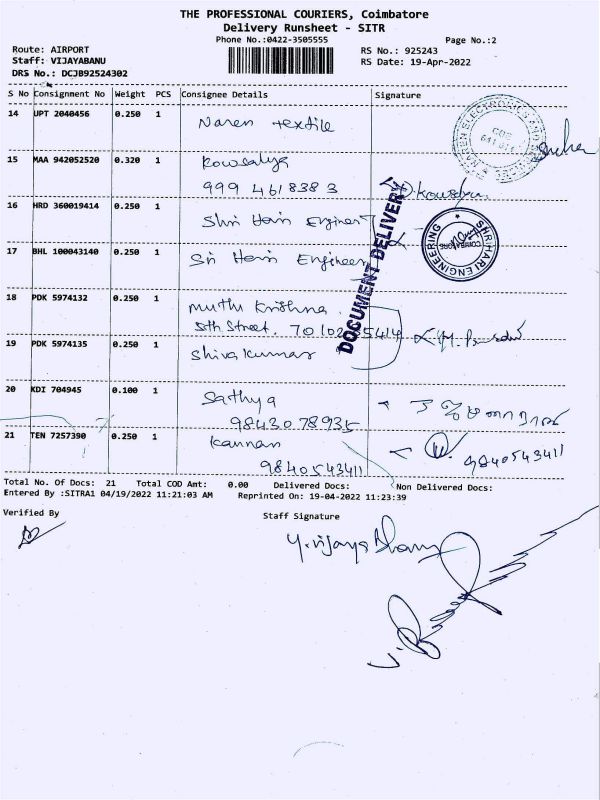 THE PROFESSIONAL COURIERS, Coimbatore
Delivery Runsheet - SITR
Phone No.:0422-3505555
Page No.:2
Route: AIRPORT
RS No.: 925243
Staff: VIJAYABANU
RS Date: 19-Apr-2022
DRS No.: DCJB92524302
S No Consignment No Weight PCS Consignee Details Signature
14 UPT 2040456 0.250 1 Naren textile
15 MAA 942052520 0.320 1 Kowsalya
999 4618383 D. Kowsalya
16 HRD 360019414 0.250 1 Shri Hari Engineer
17 BHL 100043140 0.250 1 Sri Hari Engineer
DOCUMENT DELIVERY
SHRI HARI ENGINEERING
COIMBATORE
18 PDK 5974132 0.250 1 Muthu Krishna
5th Street.
19 PDK 5974135 0.250 1 Shivakumar
20 KDI 704945 0.100 1 Sathya
9843078935
21 TEN 7257390 0.250 1 Kannan
9840543411 9840543411
Total No. Of Docs: 21 Total COD Amt: 0.00 Delivered Docs: Non Delivered Docs:
Entered By :SITRA1 04/19/2022 11:21:03 AM Reprinted On: 19-04-2022 11:23:39
Verified By Staff Signature
Y. Vijaya Bhanu